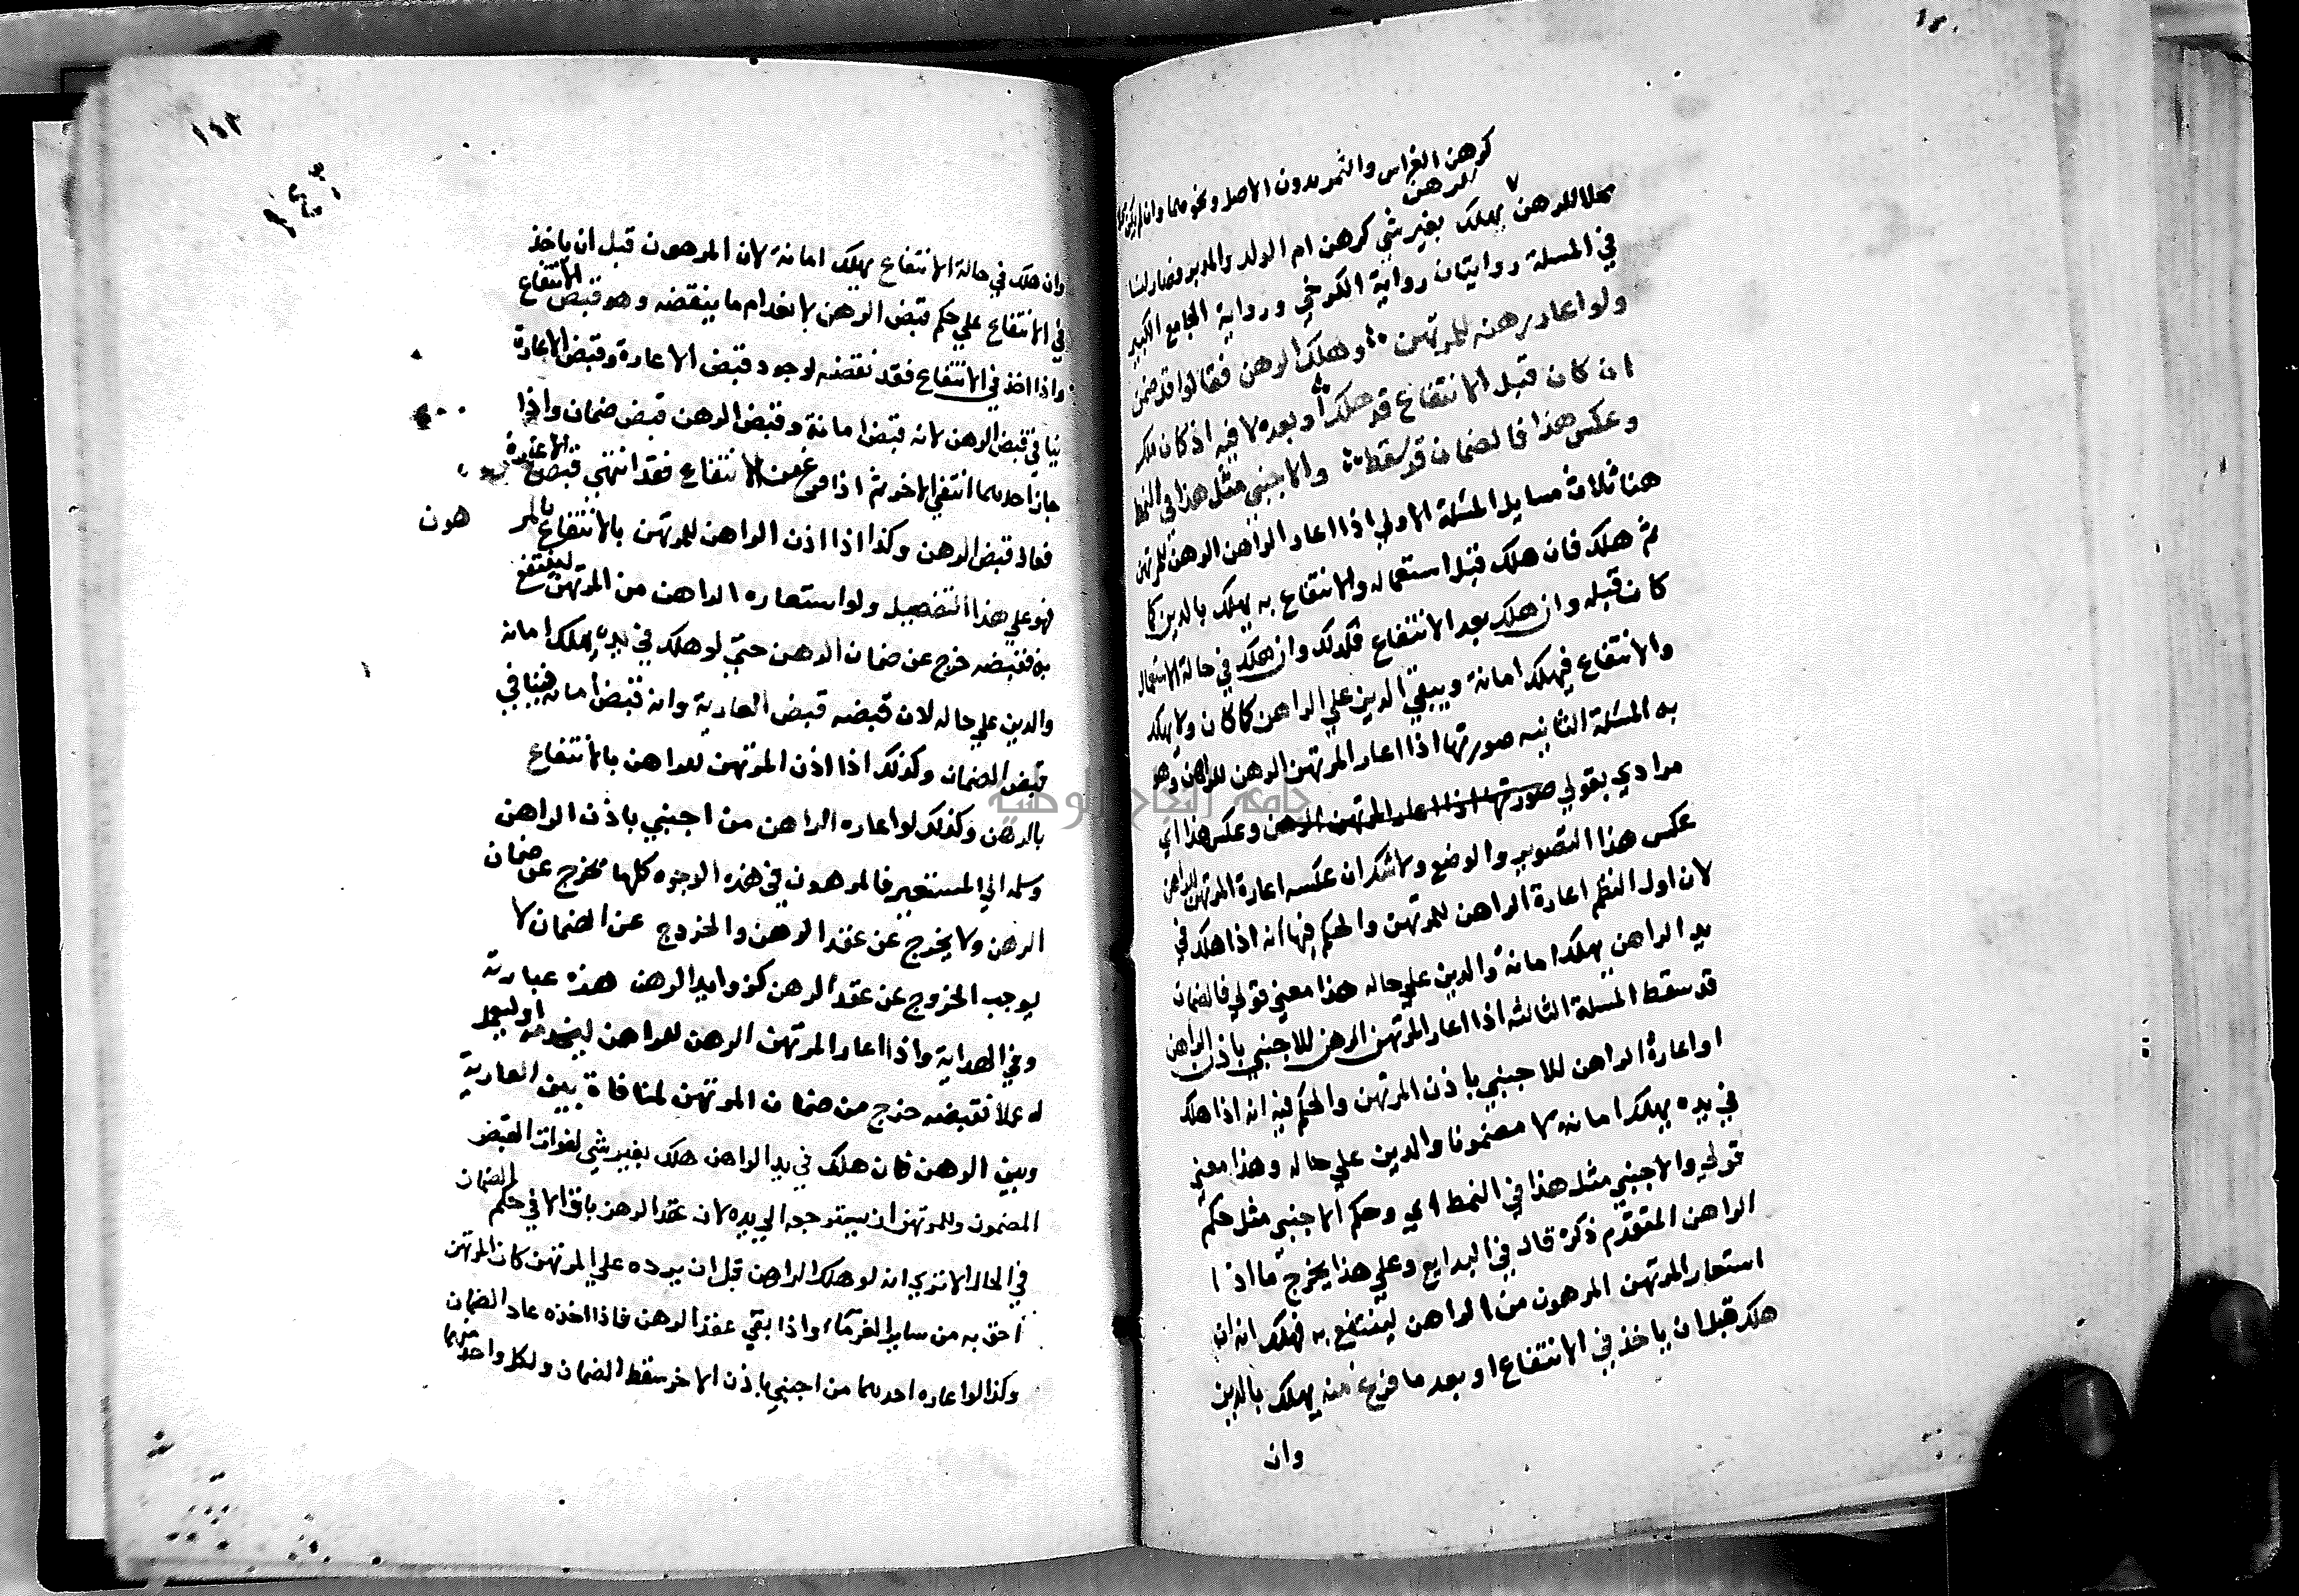 كرهن الغراس والثمر بدون الاصل ونحوهما وان لم يكن
محلا للرهن يهلك بغير شي كرهن ام الولد والمدبر فصار لنا
الرهن
في المسلة روايتان رواية الكرخي ورواية الجامع الكبير
ولو اعار رهنه للمرتهن وهلك الرهن فقالوا قد ضمن
ان كان قبل الانتفاع قد هلك او بعده لا فيه اذ كان ملك
وعكس هذا فالضمان قد سقط والاجنبي مثل هذا في النمط
هنا ثلاث مسايل المسلة الاولي اذا اعار الراهن الرهن للمرتهن
ثم هلك فان هلك قبل استعماله والانتفاع به يهلك بالدين كما
كان قبله وان هلك بعد الانتفاع فكذلك وان هلك في حالة الاستعمال
والانتفاع فيهلك امانة ويبقي الدين علي الراهن كما كان ولا يهلك
به المسئلة الثانيه صورتها اذا اعار المرتهن الرهن للراهن وهو
مرادي بقولي صورتها اذا اعار المرتهن الرهن وعكس هذا اي
عكس هذا التصوير والوضع ولا شك ان عكسه اعارة المرتهن للراهن
لان اول النظم اعارة الراهن للمرتهن والحكم فيها انه اذا هلك في
يد الراهن يهلك امانة والدين علي حاله هذا معني قولي فالضمان
قد سقط المسلة الثالثه اذا اعار المرتهن الرهن للاجنبي باذن الراهن
او اعارة الراهن للاجنبي باذن المرتهن والحكم فيه انه اذا هلك
في يده يهلك امانة لا مضمونا والدين علي حاله وهذا معني
قولي والاجنبي مثل هذا في النمط اي وحكم الاجنبي مثل حكم
الراهن المتقدم ذكره قال في البدايع وعلي هذا يخرج ما اذا
استعار المرتهن المرهون من الراهن لينتفع به فهلك انه ان
هلك قبل ان ياخذ في الانتفاع او بعد ما فرغ منه يهلك بالدين
وان
١٤٣
وان هلك في حالة الانتفاع يهلك امانة لان المرهون قبل ان ياخذ
في الانتفاع علي حكم قبض الرهن لانعدام ما ينقضه وهو قبض الانتفاع
واذا اخذ في الانتفاع فقد نقضه لوجود قبض الاعارة وقبض الاعارة
ينافي قبض الرهن لانه قبض امانة وقبض الرهن قبض ضمان واذا
جاز احدهما انتفي الاخر ثم اذا فرغ من الانتفاع فقد انتهي قبض الاعارة
فعاد قبض الرهن وكذا اذا اذن الراهن للمرتهن بالانتفاع بالمر هون
فهو علي هذا التفصيل ولو استعاره الراهن من المرتهن لينتفع
به فقبضه خرج عن ضمان الرهن حتي لو هلك في يده يهلك امانه
والدين علي حاله لان قبضه قبض العارية وانه قبض امانه فينافي
قبض الضمان وكذلك اذا اذن المرتهن للراهن بالانتفاع
بالرهن وكذلك لو اعاره الراهن من اجنبي باذن الراهن
وسلمه الي المستعير فالمرهون في هذه الوجوه كلها تخرج عن ضمان
الرهن ولا يخرج عن عقد الرهن والخروج عن الضمان لا
يوجب الخروج عن عقد الرهن كزوايد الرهن هذه عبارته
وفي الهداية واذا اعار المرتهن الرهن للراهن ليخدمه او ليعمل
له عملا فقبضه خرج من ضمان المرتهن لمنافاة بين العارية
وبين الرهن فان هلك في يد الراهن هلك بغير شي لفوات القبض
المضمون وللمرتهن ان يسترجعه الي يده لان عقد الرهن باق الا في حكم الضمان
في الحال الا تري انه لو هلك الراهن قبل ان يرده علي المرتهن كان المرتهن
احق به من ساير الغرماء واذا بقي عقد الرهن فاذا اخذه عاد الضمان
وكذا لو اعاره احدهما من اجنبي باذن الاخر سقط الضمان ولكل واحد منهما
جامعة النجاح الوطنية